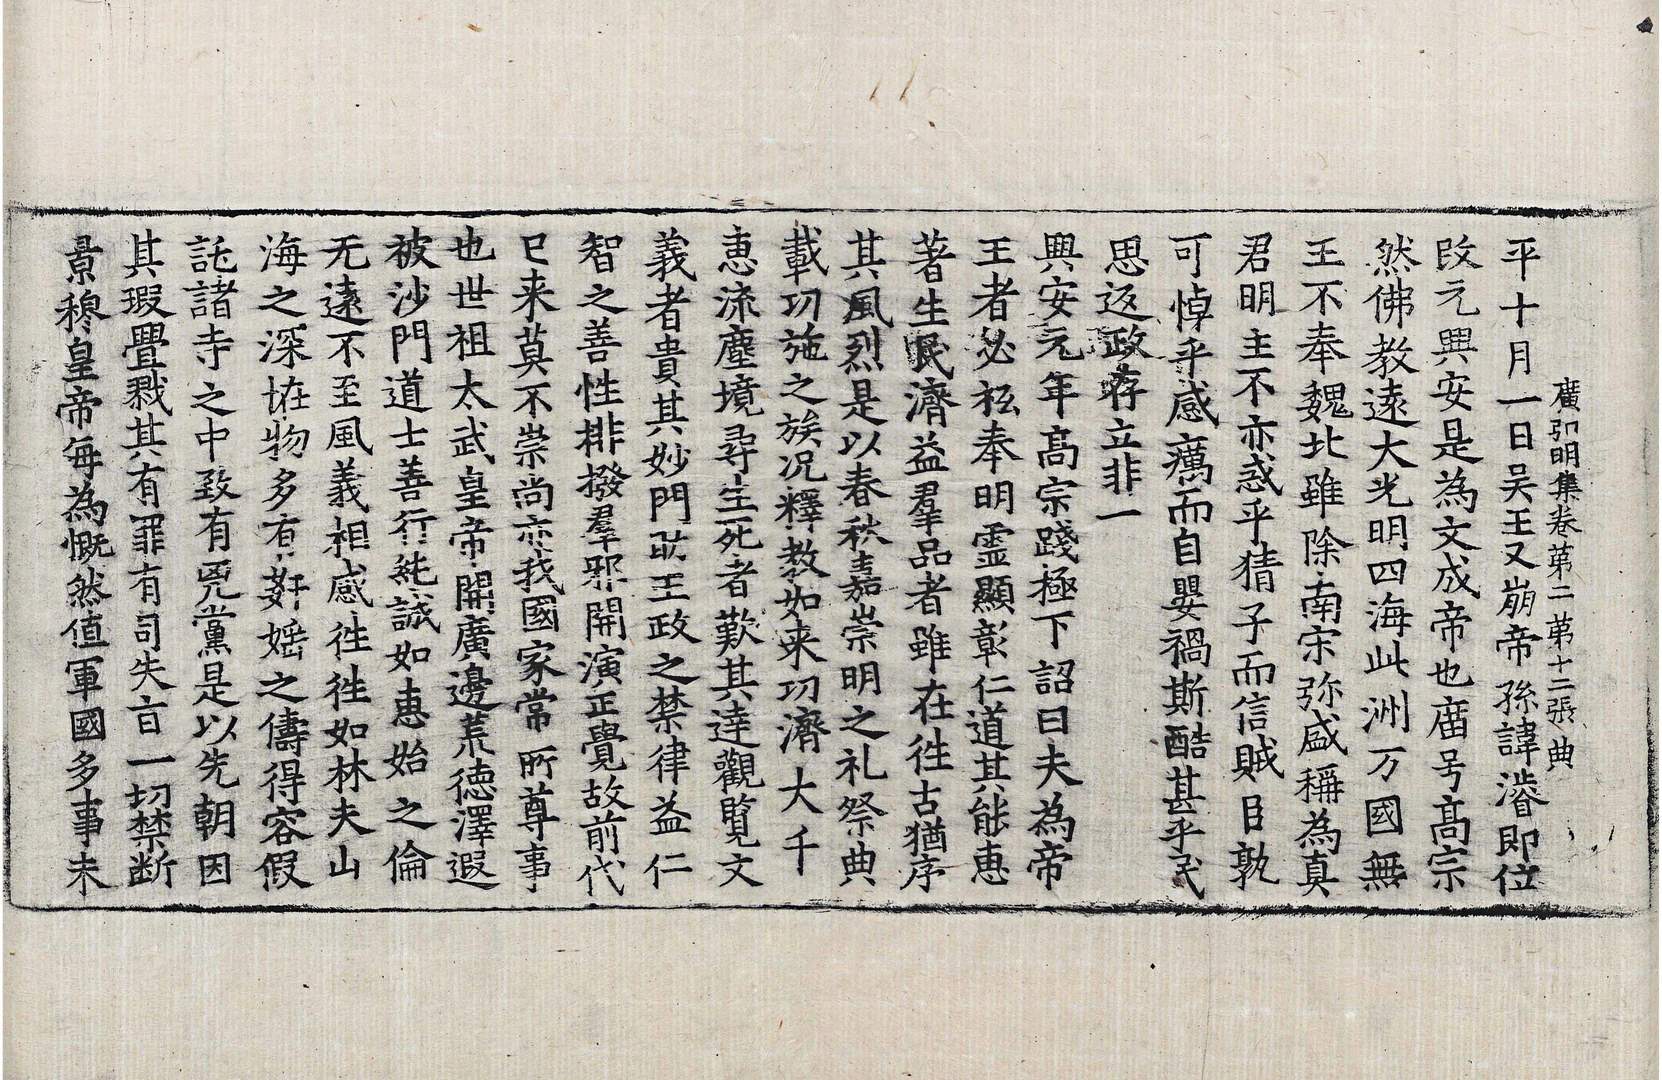 廣弘明集卷第二 第十二張 典
平十月一日吴王又崩帝孫諱濬即位
改元興安是為文成帝也庿号髙宗
然佛教遠大光明四海此洲万國無
王不奉魏北雖除南宋弥盛稱為真
君明主不亦惑乎猜子而信賊臣孰
可悼乎感癘而自嬰禍斯酷甚乎民
思返政存立非一
興安元年髙宗踐極下詔曰夫為帝
王者必祗奉明靈顯彰仁道其能惠
著生民濟益羣品者雖在徃古猶序
其風烈是以春秋嘉崇明之礼祭典
載功施之族况釋教如来功濟大千
惠流塵境尋生死者歎其達觀覧文
義者貴其妙門助王政之禁律益仁
智之善性排撥羣邪開演正覺故前代
已来莫不崇尚亦我國家常所尊事
也世祖太武皇帝開廣邊荒德澤遐
被沙門道士善行純誠如惠始之倫
无遠不至風義相感徃徃如林夫山
海之深恠物多有姧婬之儔得容假
託諸寺之中致有兇黨是以先朝因
其瑕舋戮其有罪有司失㫖一切禁断
景穆皇帝每為慨然值軍國多事未